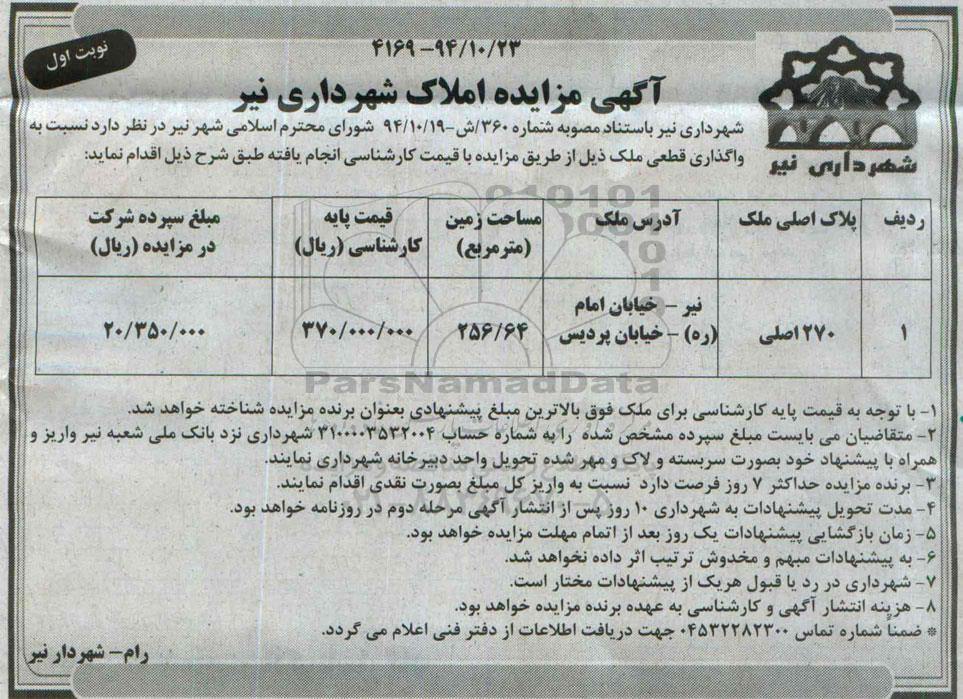 نوبت اول
۴۱۶۹-۹۴/۱۰/۲۳
آگهی مزایده املاک شهرداری نیر
شهرداری نیر
شهرداری نیر باستناد مصوبه شماره ۳۶۰/ش-۹۴/۱۰/۱۹ شورای محترم اسلامی شهر نیر در نظر دارد نسبت به
واگذاری قطعی ملک ذیل از طریق مزایده با قیمت کارشناسی انجام یافته طبق شرح ذیل اقدام نماید:
ردیف | پلاک اصلی ملک | آدرس ملک | مساحت زمین (مترمربع) | قیمت پایه کارشناسی (ریال) | مبلغ سپرده شرکت در مزایده (ریال)
۱ | ۲۷۰ اصلی | نیر - خیابان امام (ره) - خیابان پردیس | ۲۵۶/۶۴ | ۳۷۰/۰۰۰/۰۰۰ | ۲۰/۳۵۰/۰۰۰
ParsNamadData
۱- با توجه به قیمت پایه کارشناسی برای ملک فوق بالاترین مبلغ پیشنهادی بعنوان برنده مزایده شناخته خواهد شد.
۲- متقاضیان می بایست مبلغ سپرده مشخص شده را به شماره حساب ۳۱۰۰۰۰۳۵۳۲۰۰۴ شهرداری نزد بانک ملی شعبه نیر واریز و
همراه با پیشنهاد خود بصورت سربسته و لاک و مهر شده تحویل واحد دبیرخانه شهرداری نمایند.
۳- برنده مزایده حداکثر ۷ روز فرصت دارد نسبت به واریز کل مبلغ بصورت نقدی اقدام نمایند.
۴- مدت تحویل پیشنهادات به شهرداری ۱۰ روز پس از انتشار آگهی مرحله دوم در روزنامه خواهد بود.
۵- زمان بازگشایی پیشنهادات یک روز بعد از اتمام مهلت مزایده خواهد بود.
۶- به پیشنهادات مبهم و مخدوش ترتیب اثر داده نخواهد شد.
۷- شهرداری در رد یا قبول هریک از پیشنهادات مختار است.
۸- هزینه انتشار آگهی و کارشناسی به عهده برنده مزایده خواهد بود.
* ضمنا شماره تماس ۰۴۵۳۲۲۸۲۳۰۰ جهت دریافت اطلاعات از دفتر فنی اعلام می گردد.
رام- شهردار نیر